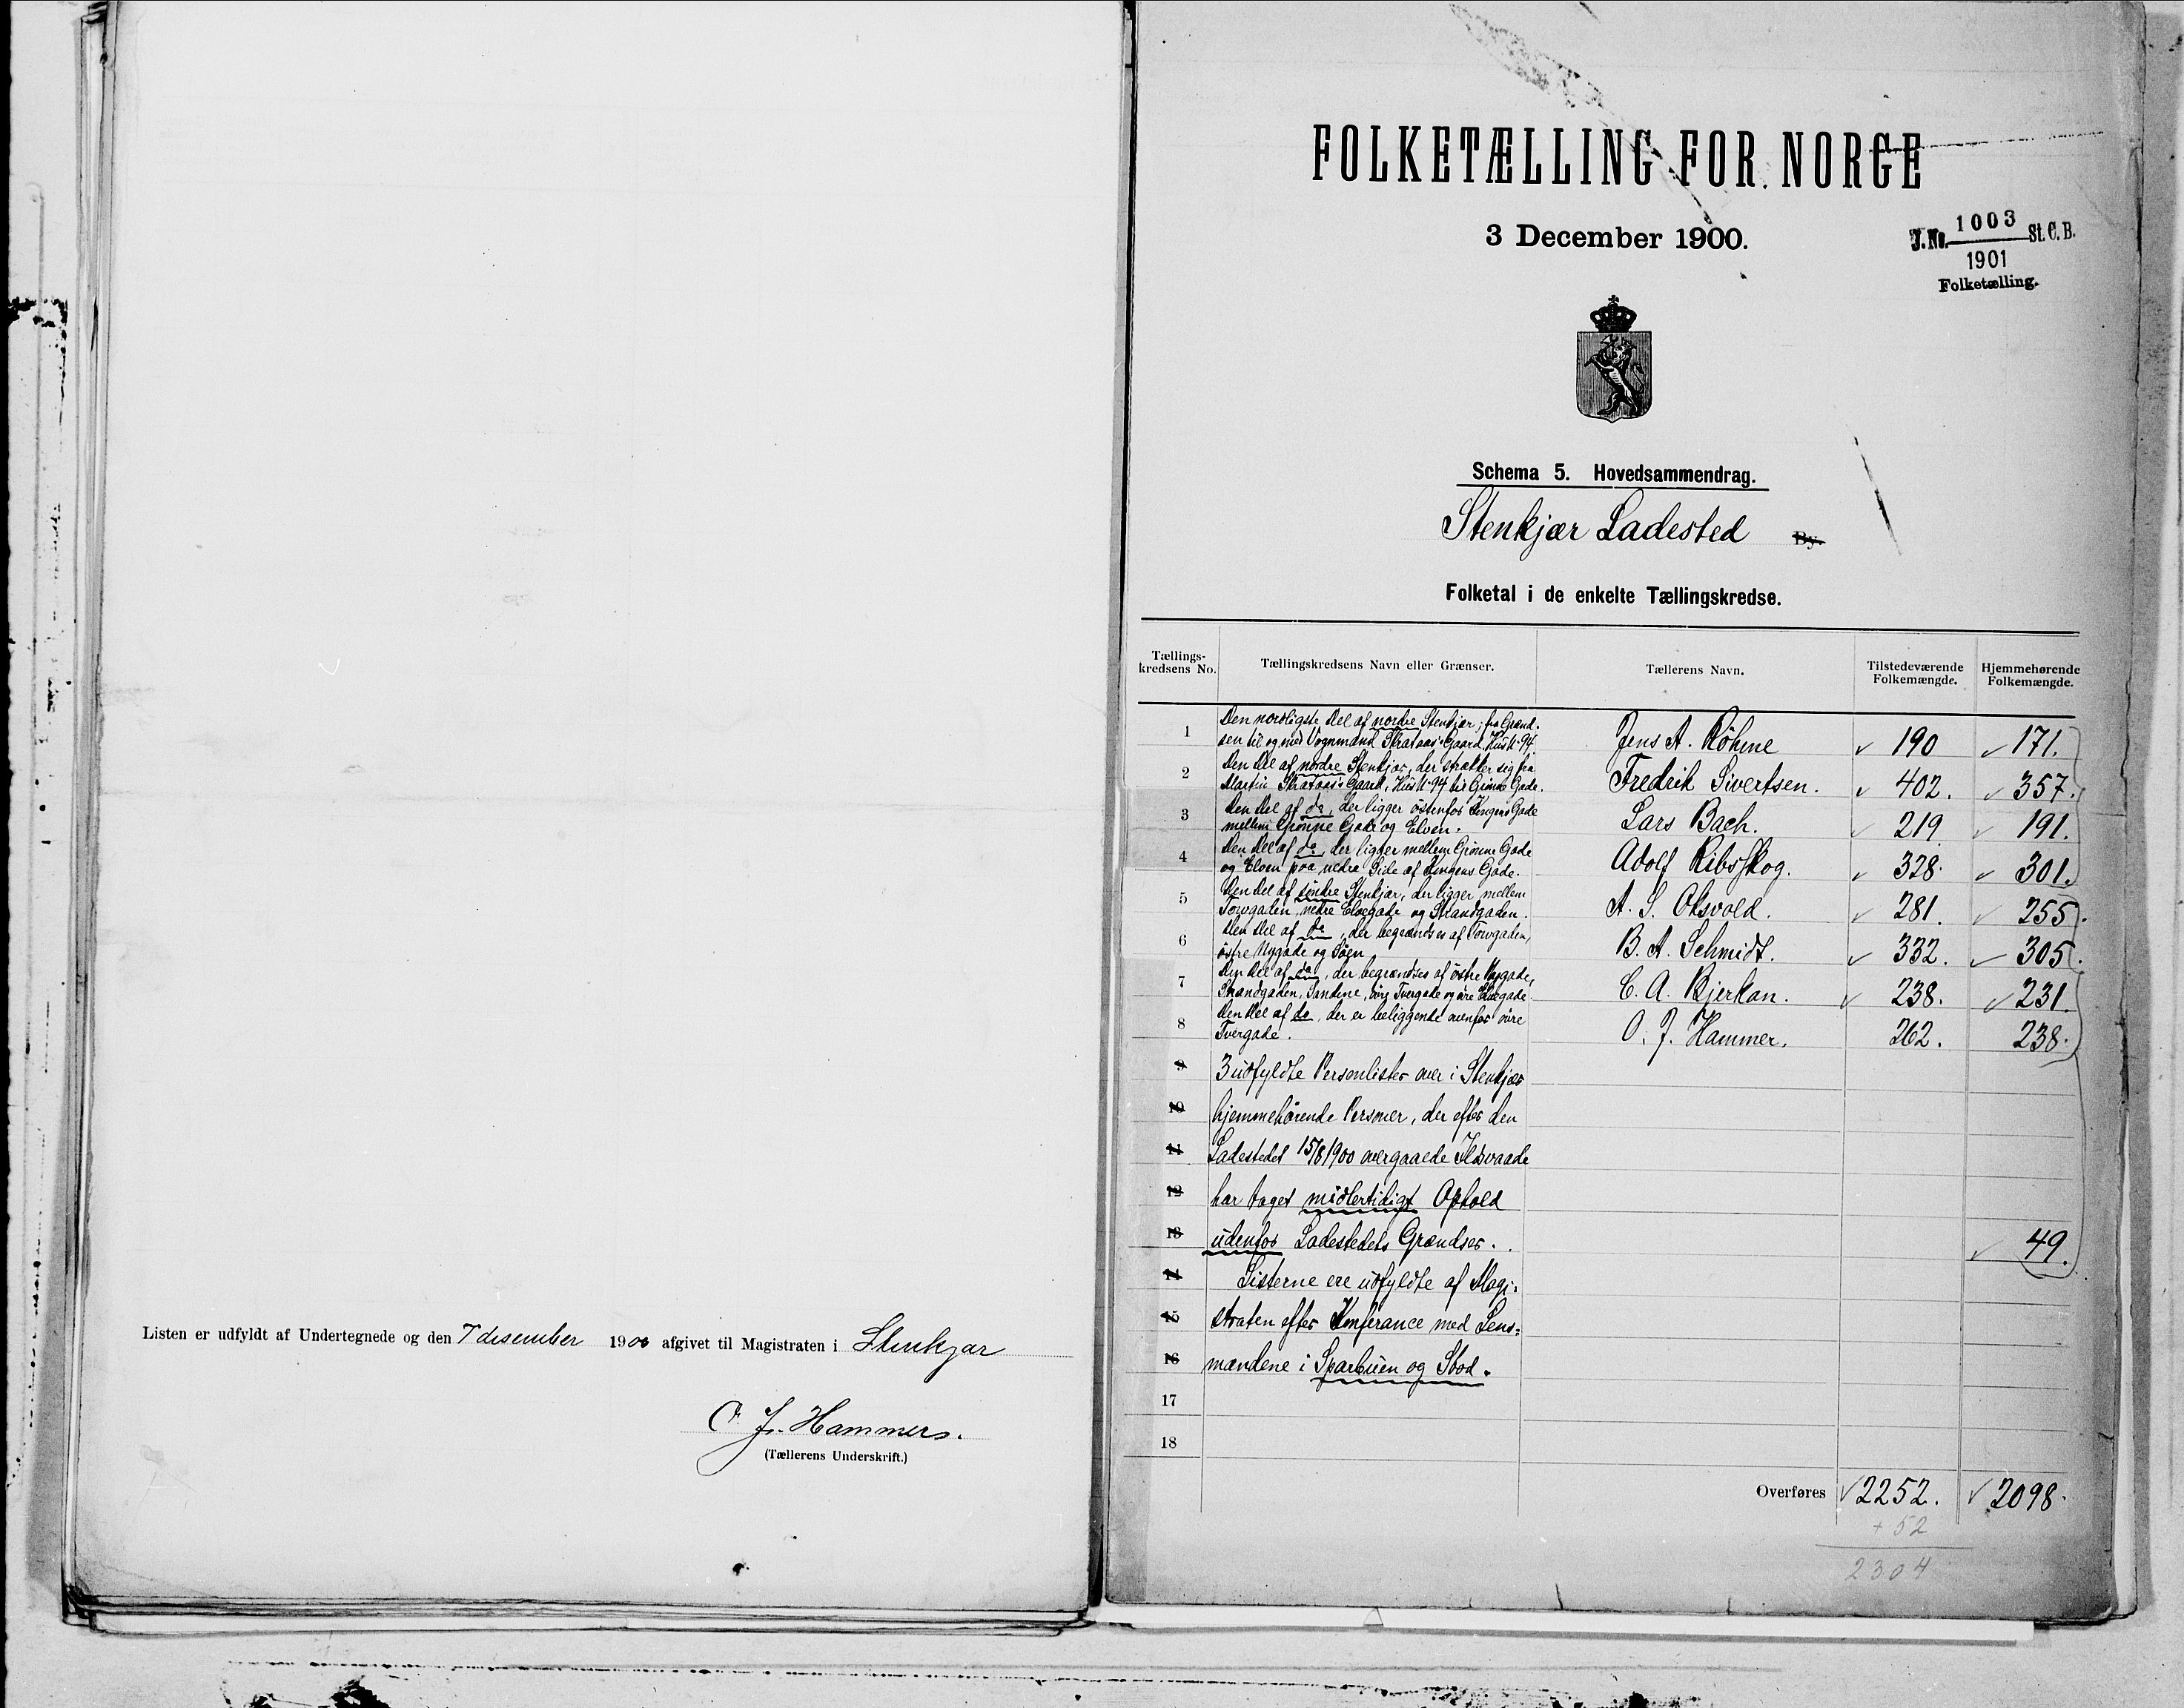 Listen er udfyldt af Undertegnede og den 7 desember 1900 afgivet til Magistraten i Stenkjær
O. J. Hammer.
(Tællerens Underskrift.)
FOLKETÆLLING FOR NORGE
3 December 1900.
J.No. 1003 St.C.B.
1901
Folketælling.
Schema 5. Hovedsammendrag.
Stenkjær Ladested By.
Folketal i de enkelte Tællingskredse.
Tællings-kredsens No. Tællingskredsens Navn eller Grænser. Tællerens Navn. Tilstedeværende Folkemængde. Hjemmehørende Folkemængde.
1 Den nordligste Del af nordre Stenkjær; fra Grænd-
sen til og med Vognmand Strataas's Gaard, Hus N. 94 Jens A. Röhme 190 171.
2 Den Del af nordre Stenkjær, der strækker sig fra
Martin Strataas's Gaard, Hus N. 94 til Grönne Gade. Fredrik Sivertsen. 402. 357.
3 Den Del af do, der ligger östenfor Kongens Gade
mellem Grönne Gade og Elven. Lars Bach. 219 191.
4 Den Del af do, der ligger mellem Grönne Gade
og Elven paa nedre Side af Kongens Gade. Adolf Ribsskog. 328. 301.
5 Den Del af söndre Stenkjær, der ligger mellem
Torvgaden, nedre Elvegade og Strandgaden. A. S. Oksvold. 281. 255.
6 Den Del af do, der begrændses af Torvgaden,
östre Nygade og Söen. B. A. Schmidt. 332. 305.
7 Den Del af do, der begrændses af östre Nygade,
Strandgaden, Sandene, övre Tvergade og övre Elvegade. C. A. Bjerkan. 238. 231.
8 Den Del af do, der er beliggende ovenfor övre
Tvergade. O. J. Hammer. 262. 238.
9 3 udfyldte Personlister over i Stenkjær
10 hjemmehörende Personer, der efter den
11 Ladestedet 15/8 1900 overgaaede Ildsvaade
12 har taget midlertidigt Ophold
13 udenfor Ladestedets Grændser. 49.
14 Listerne ere udfyldte af Magi-
15 straten efter Konferance med Lens-
16 mændene i Sparbuen og Stod.
17
18
Overføres 2252. 2098.
+ 52
2304